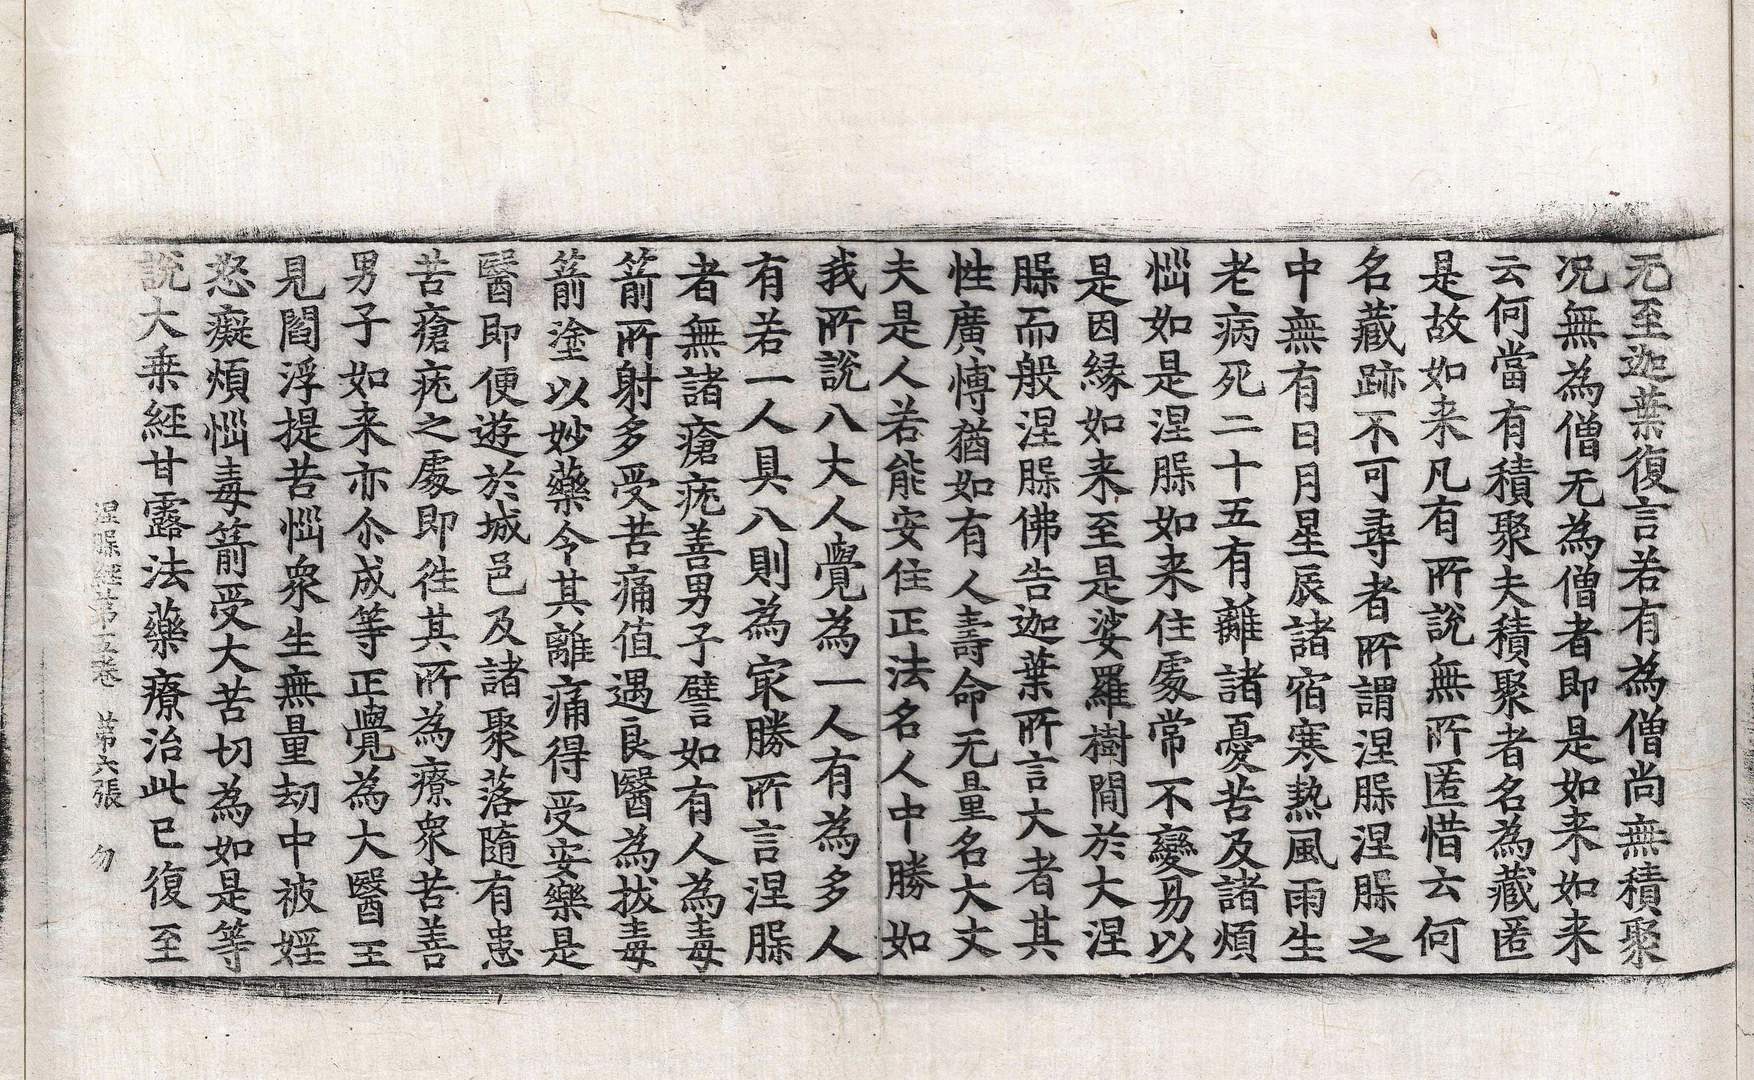 无至迦葉復言若有為僧尚無積聚
况無為僧无為僧者即是如来如来
云何當有積聚夫積聚者名為藏匿
是故如来凡有所說無所匿惜云何
名藏跡不可尋者所謂涅槃涅槃之
中無有日月星辰諸宿寒熱風雨生
老病死二十五有離諸憂苦及諸煩
惱如是涅槃如来住處常不變易以
是因緣如来至是娑羅樹間於大涅
槃而般涅槃佛告迦葉所言大者其
性廣愽猶如有人壽命无量名大丈
夫是人若能安住正法名人中勝如
我所說八大人覺為一人有為多人
有若一人具八則為㝡勝所言涅槃
者無諸瘡疣善男子譬如有人為毒
箭所射多受苦痛值遇良醫為拔毒
箭塗以妙藥令其離痛得受安樂是
醫即便遊於城邑及諸聚落隨有患
苦瘡疣之處即往其所為療衆苦善
男子如来亦尒成等正覺為大醫王
見閻浮提苦惱衆生無量劫中被婬
怒癡煩惱毒箭受大苦切為如是等
說大乗經甘露法藥療治此已復至
涅槃經第五卷　第六張　勿